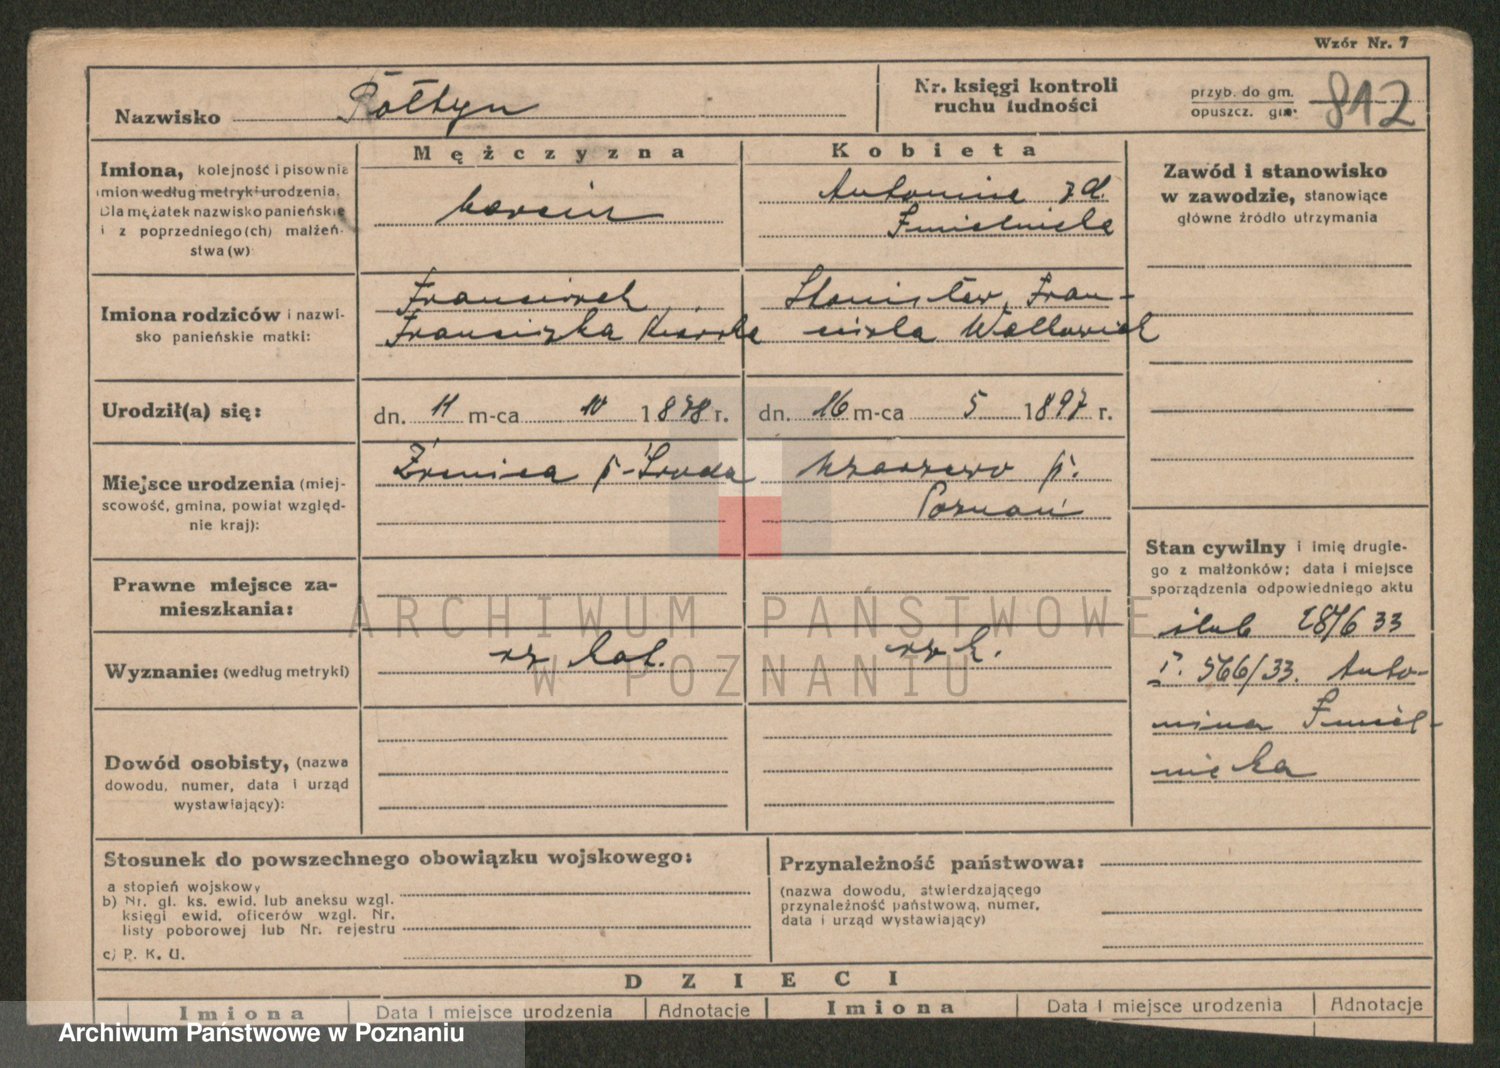 Wzór Nr. 7
Nazwisko Rołtyn
Nr. księgi kontroli
ruchu ludności
przyb. do gm.
opuszcz. gm.
812
Mężczyzna
Kobieta
Imiona, kolejność i pisownia
imion według metryki urodzenia.
Dla mężatek nazwisko panieńskie
i z poprzedniego(ch) małżeń-
stwa(w)
Marcin
Antonina z d.
Zawód i stanowisko
w zawodzie, stanowiące
główne źródło utrzymania
Imiona rodziców i nazwi-
sko panieńskie matki:
Franciszek
Franciszka
Stanisław, Fran-
ciszka
Urodził(a) się:
dn. 11 m-ca 10 1878 r.
dn. 16 m-ca 5 1897 r.
Miejsce urodzenia (miej-
scowość, gmina, powiat względ-
nie kraj):
Żrenica p. Środa
p.
Poznań
Stan cywilny i imię drugie-
go z małżonków; data i miejsce
sporządzenia odpowiedniego aktu
ślub 28/6 33
566/33. Anto-
nina Śmiel-
nicka
Prawne miejsce za-
mieszkania:
Wyznanie: (według metryki)
rz kat.
rz k.
Dowód osobisty, (nazwa
dowodu, numer, data i urząd
wystawiający):
Stosunek do powszechnego obowiązku wojskowego:
a stopień wojskowy
b) Nr. gł. ks. ewid. lub aneksu wzgl.
księgi ewid. oficerów wzgl. Nr.
listy poborowej lub Nr. rejestru
c) P. K. U.
Przynależność państwowa:
(nazwa dowodu, stwierdzającego
przynależność państwową, numer,
data i urząd wystawiający)
DZIECI
Imiona
Data i miejsce urodzenia
Adnotacje
Imiona
Data i miejsce urodzenia
Adnotacje
ARCHIWUM PAŃSTWOWE
W POZNANIU
Archiwum Państwowe w Poznaniu